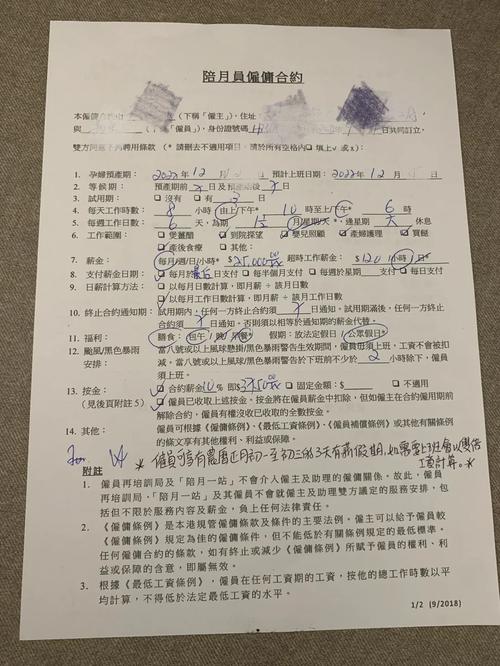 陪月員僱傭合約
本僱傭合約由 （下稱「僱主」），住址
與 （下稱「僱員」），身份證號碼 日共同訂立，
雙方同意下列聘用條款（* 請刪去不適用項目，請於所有空格內☐填上✓或 x）：
1. 孕婦預產期： 2022年12月 日 預計上班日期：2022年12月 日
2. 等候期： 預產期前 7 日及預產期後 7 日
3. 試用期： ☐ 沒有 ☐ 有 3 日
4. 每天工作時數： 8 小時 由上/下午* 10 時至上/下午* 6 時
5. 每週工作日數： 6 天，為期 月/星期/天*，逢星期 休息
6. 工作範圍： ☑ 煲薑醋 ☐ 到院探望 ☑ 嬰兒照顧 ☑ 產婦護理 ☑ 買餸
☑ 產後食療 ☐ 其他：
7. 薪金： 每月/週/日/小時* $ 超時工作薪金：$120 /小時/日*
8. 支付薪金日期： ☑ 每月於 日支付 ☐ 每半個月支付 ☐ 每週於星期 支付 ☐ 每日支付
9. 日薪計算方法： ☐ 以每月日數計算，即月薪 ÷ 該月日數
☑ 以每月工作日數計算，即月薪 ÷ 該月工作日數
10. 終止合約通知期： 試用期內，任何一方終止合約須 日通知。試用期滿後，任何一方終止
合約須 7 日通知。否則須以相等於通知期的薪金代替。
11. 福利： 膳食：包午/晚 假期：放法定假日/公眾假日*
12. 颱風/黑色暴雨 當八號或以上風球懸掛/黑色暴雨警告生效期間，僱員毋須上班，工資不會被扣
安排： 減。當八號或以上風球/黑色暴雨警告於下班前不少於 2 小時除下，僱員
須上班。
13. 按金： ☑ 合約薪金 10 % 即$ ☐ 固定金額：$ ☐ 不適用
（見後頁附註 5） ☐ 僱員已收取上述按金。按金將在僱員薪金中扣除，但如僱主在合約僱用期前
解除合約，僱員有權沒收已收取的全數按金。
14. 其他： 僱員可根據《僱傭條例》、《最低工資條例》、《僱員補償條例》或其他有關條例
的條文享有其他權利、利益或保障。
* 僱員可享有農曆正月初一至初三這3天有薪假期，如需要上班會以雙倍
工資計算。*
附註
1. 僱員再培訓局及「陪月一站」不會介入僱主及助理的僱傭關係。故此，僱員
再培訓局，「陪月一站」及其僱員不會就僱主及助理雙方議定的服務安排，包
括但不限於服務內容及薪金，負上任何法律責任。
2. 《僱傭條例》是本港規管僱傭條款及條件的主要法例。僱主可以給予僱員較
《僱傭條例》規定為佳的僱傭條件，但不能低於有關條例規定的最低標準。
任何僱傭合約的條款，如有終止或減少《僱傭條例》所賦予僱員的權利、利
益或保障的含意，即屬無效。
3. 根據《最低工資條例》，僱員在任何工資期的工資，按他的總工作時數以平
均計算，不得低於法定最低工資的水平。
1/2 (9/2018)